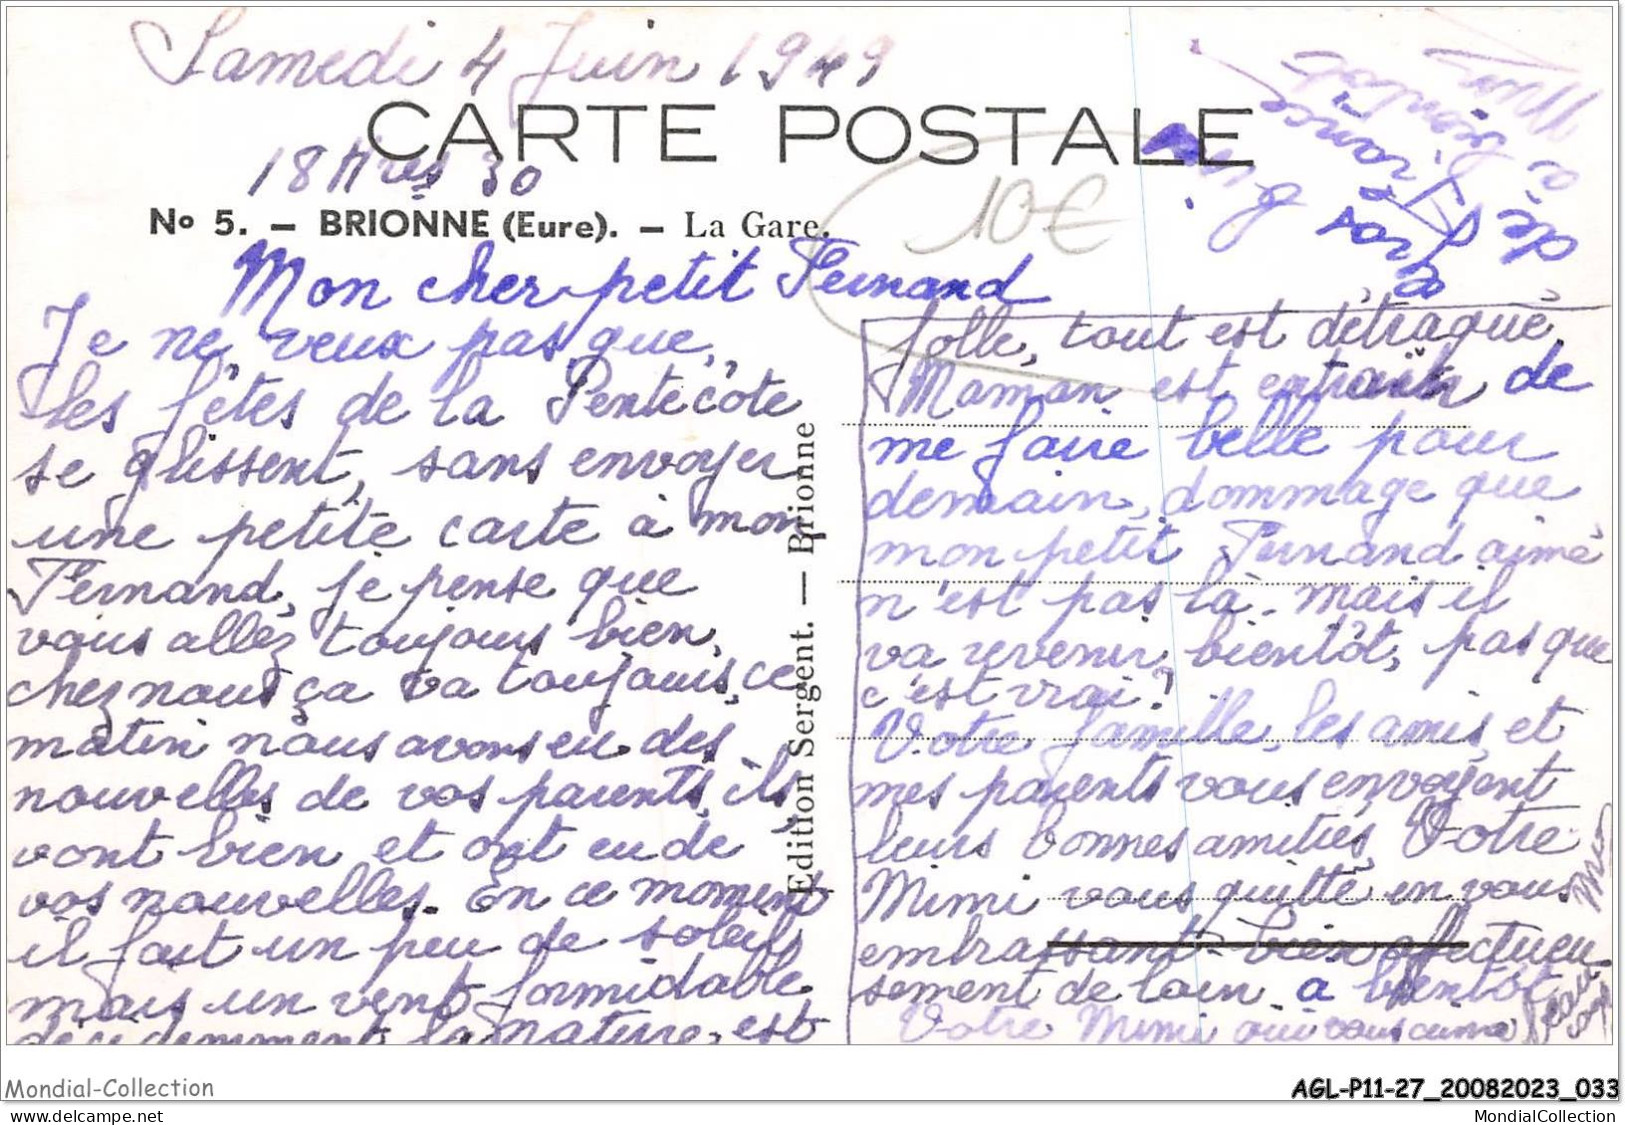 Samedi 4 Juin 1949
CARTE POSTALE
18 Hres 30
10€
No 5. — BRIONNE (Eure). — La Gare.
Mon cher petit Fernand
Je ne veux pas que,
les fêtes de la Pentecôte
se glissent, sans envoyer
une petite carte à mon
Fernand, je pense que
vous allez toujours bien,
chez nous ça va toujours, ce
matin nous avons eu des
nouvelles de vos parents, ils
vont bien et ont eu de
vos nouvelles. En ce moment
il fait un peu de soleil
mais un vent formidable
décidemment la nature, est
Edition Sergent. — Brionne
folle, tout est détraqué.
Maman est entrain de
me faire belle pour
demain, dommage que
mon petit Fernand aimé
n'est pas là. mais il
va revenir, bientôt, pas que
c'est vrai?
Votre famille, les amis, et
mes parents vous envoyent
leurs bonnes amitiés, Votre
Mimi vous quitte en vous
embrassant bien affectueu
sement de loin. a bientôt
Votre Mimi qui vous aime
Gros